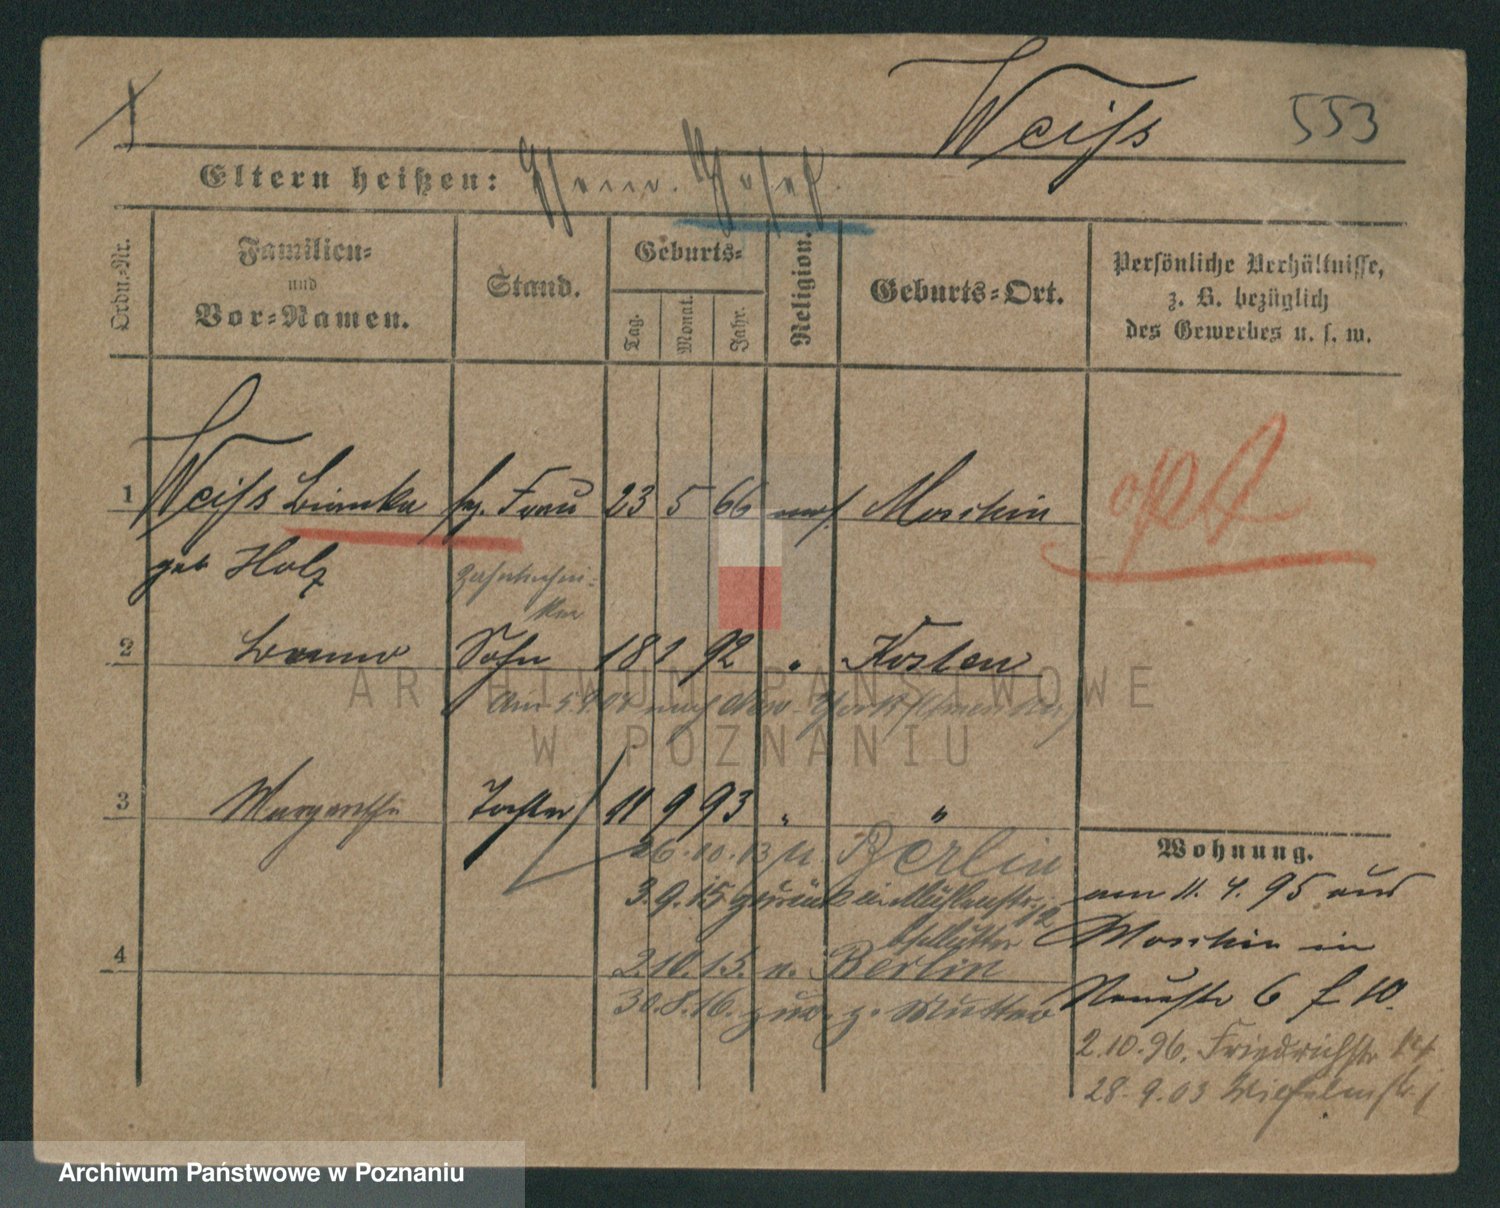 Weiss
553
Eltern heißen:
Ordn.-Nr.
Familien-
und
Vor-Namen.
Stand.
Geburts-
Tag.
Monat.
Jahr.
Religion.
Geburts-Ort.
Persönliche Verhältnisse,
z. B. bezüglich
des Gewerbes u. s. w.
1 Weiss Bianka Frau 23 5 66 mos Moschin
geb Holz
2 Benno Sohn 18 1 92 " Kosten
Am nach New York
3 Margarethe Tochter 11 9 93 " "
26.10.13 n. Berlin
3.9.15 zurück
4
2.10.15. n. Berlin
30.8.16. zur. z. Mutter
Wohnung.
am 11.4.95 aus
Moschin in
Neuestr 6 f 10.
2.10.96. Friedrichstr
28.9.03 Wilhelmstr
ARCHIWUM PAŃSTWOWE
W POZNANIU
Archiwum Państwowe w Poznaniu